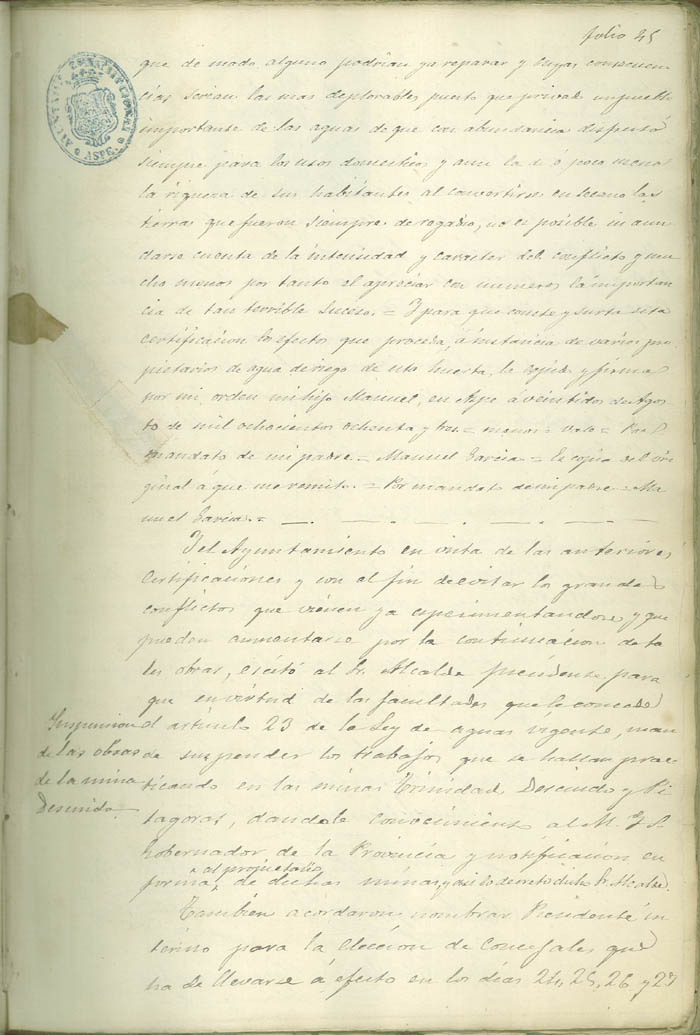 folio 25
que de modo alguno podrian ya reparar y cuyas consecuen
cias serian las mas deplorables puesto que privado un pueblo
importante de las aguas de que con abundancia disfrutó
siempre para los usos domesticos y aun la de ó poco menos
la riqueza de sus habitantes al convertirse en secano las
tierras que fueron siempre de regadio, no es posible ni aun
darse cuenta de la intensidad y caracter del conflicto y mu
cho menos por tanto el apreciar con numeros la importan
cia de tan terrible suceso. = Y para que conste y surta esta
certificacion los efectos que proceda, á instancia de varios pro
pietarios de agua de riego de esta huerta, la copia y firma
por mi orden mi hijo Manuel, en Aspe á veintidos de Agos
to de mil ochocientos ochenta y tres. = menos = vale = Por
mandato de mi padre = Manuel Garcia = Es copia del ori
ginal á que me remito. = Por mandato de mi padre = Ma
nuel Garcia. =
Y el Ayuntamiento en vista de las anteriores
certificaciones y con el fin de evitar los grandes
conflictos que vienen ya esperimentandose y que
pueden aumentarse por la continuacion de ta
les obras, escitó al Sr. Alcalde presidente para
que en virtud de las facultades que le concede
el artículo 23 de la Ley de aguas vigente, man
de suspender los trabajos que se hallan prac
ticando en las minas Trinidad, Descuido y Pi
tagoras, dandole conocimiento al M. Y. S.
Gobernador de la Provincia y notificacion en
forma, al propietario de dichas minas, y asi lo decretó dicho Sr. Alcalde.
Tambien acordaron nombrar Presidente in
terino para la eleccion de Concejales que
ha de llevarse á efecto en los dias 24, 25, 26 y 27
Suspension
de las obras
de la mina
Descuido.
ASPE